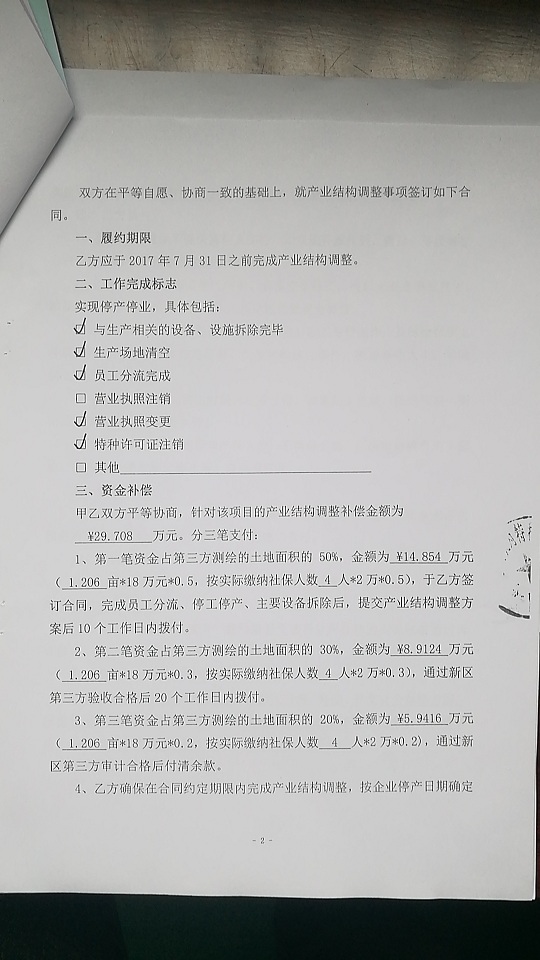 双方在平等自愿、协商一致的基础上，就产业结构调整事项签订如下合
同。
一、履约期限
乙方应于 2017 年 7 月 31 日之前完成产业结构调整。
二、工作完成标志
实现停产停业，具体包括：
☑ 与生产相关的设备、设施拆除完毕
☑ 生产场地清空
☑ 员工分流完成
□ 营业执照注销
☑ 营业执照变更
☑ 特种许可证注销
□ 其他
三、资金补偿
甲乙双方平等协商，针对该项目的产业结构调整补偿金额为
¥29.708 万元。分三笔支付：
1、第一笔资金占第三方测绘的土地面积的 50%，金额为 ¥14.854 万元
（ 1.206 亩*18 万元*0.5，按实际缴纳社保人数 4 人*2 万*0.5），于乙方签
订合同，完成员工分流、停工停产、主要设备拆除后，提交产业结构调整方
案后 10 个工作日内拨付。
2、第二笔资金占第三方测绘的土地面积的 30%，金额为 ¥8.9124 万元
（ 1.206 亩*18 万元*0.3，按实际缴纳社保人数 4 人*2 万*0.3），通过新区
第三方验收合格后 20 个工作日内拨付。
3、第三笔资金占第三方测绘的土地面积的 20%，金额为 ¥5.9416 万元
（ 1.206 亩*18 万元*0.2，按实际缴纳社保人数 4 人*2 万*0.2），通过新
区第三方审计合格后付清余款。
4、乙方确保在合同约定期限内完成产业结构调整，按企业停产日期确定
- 2 -